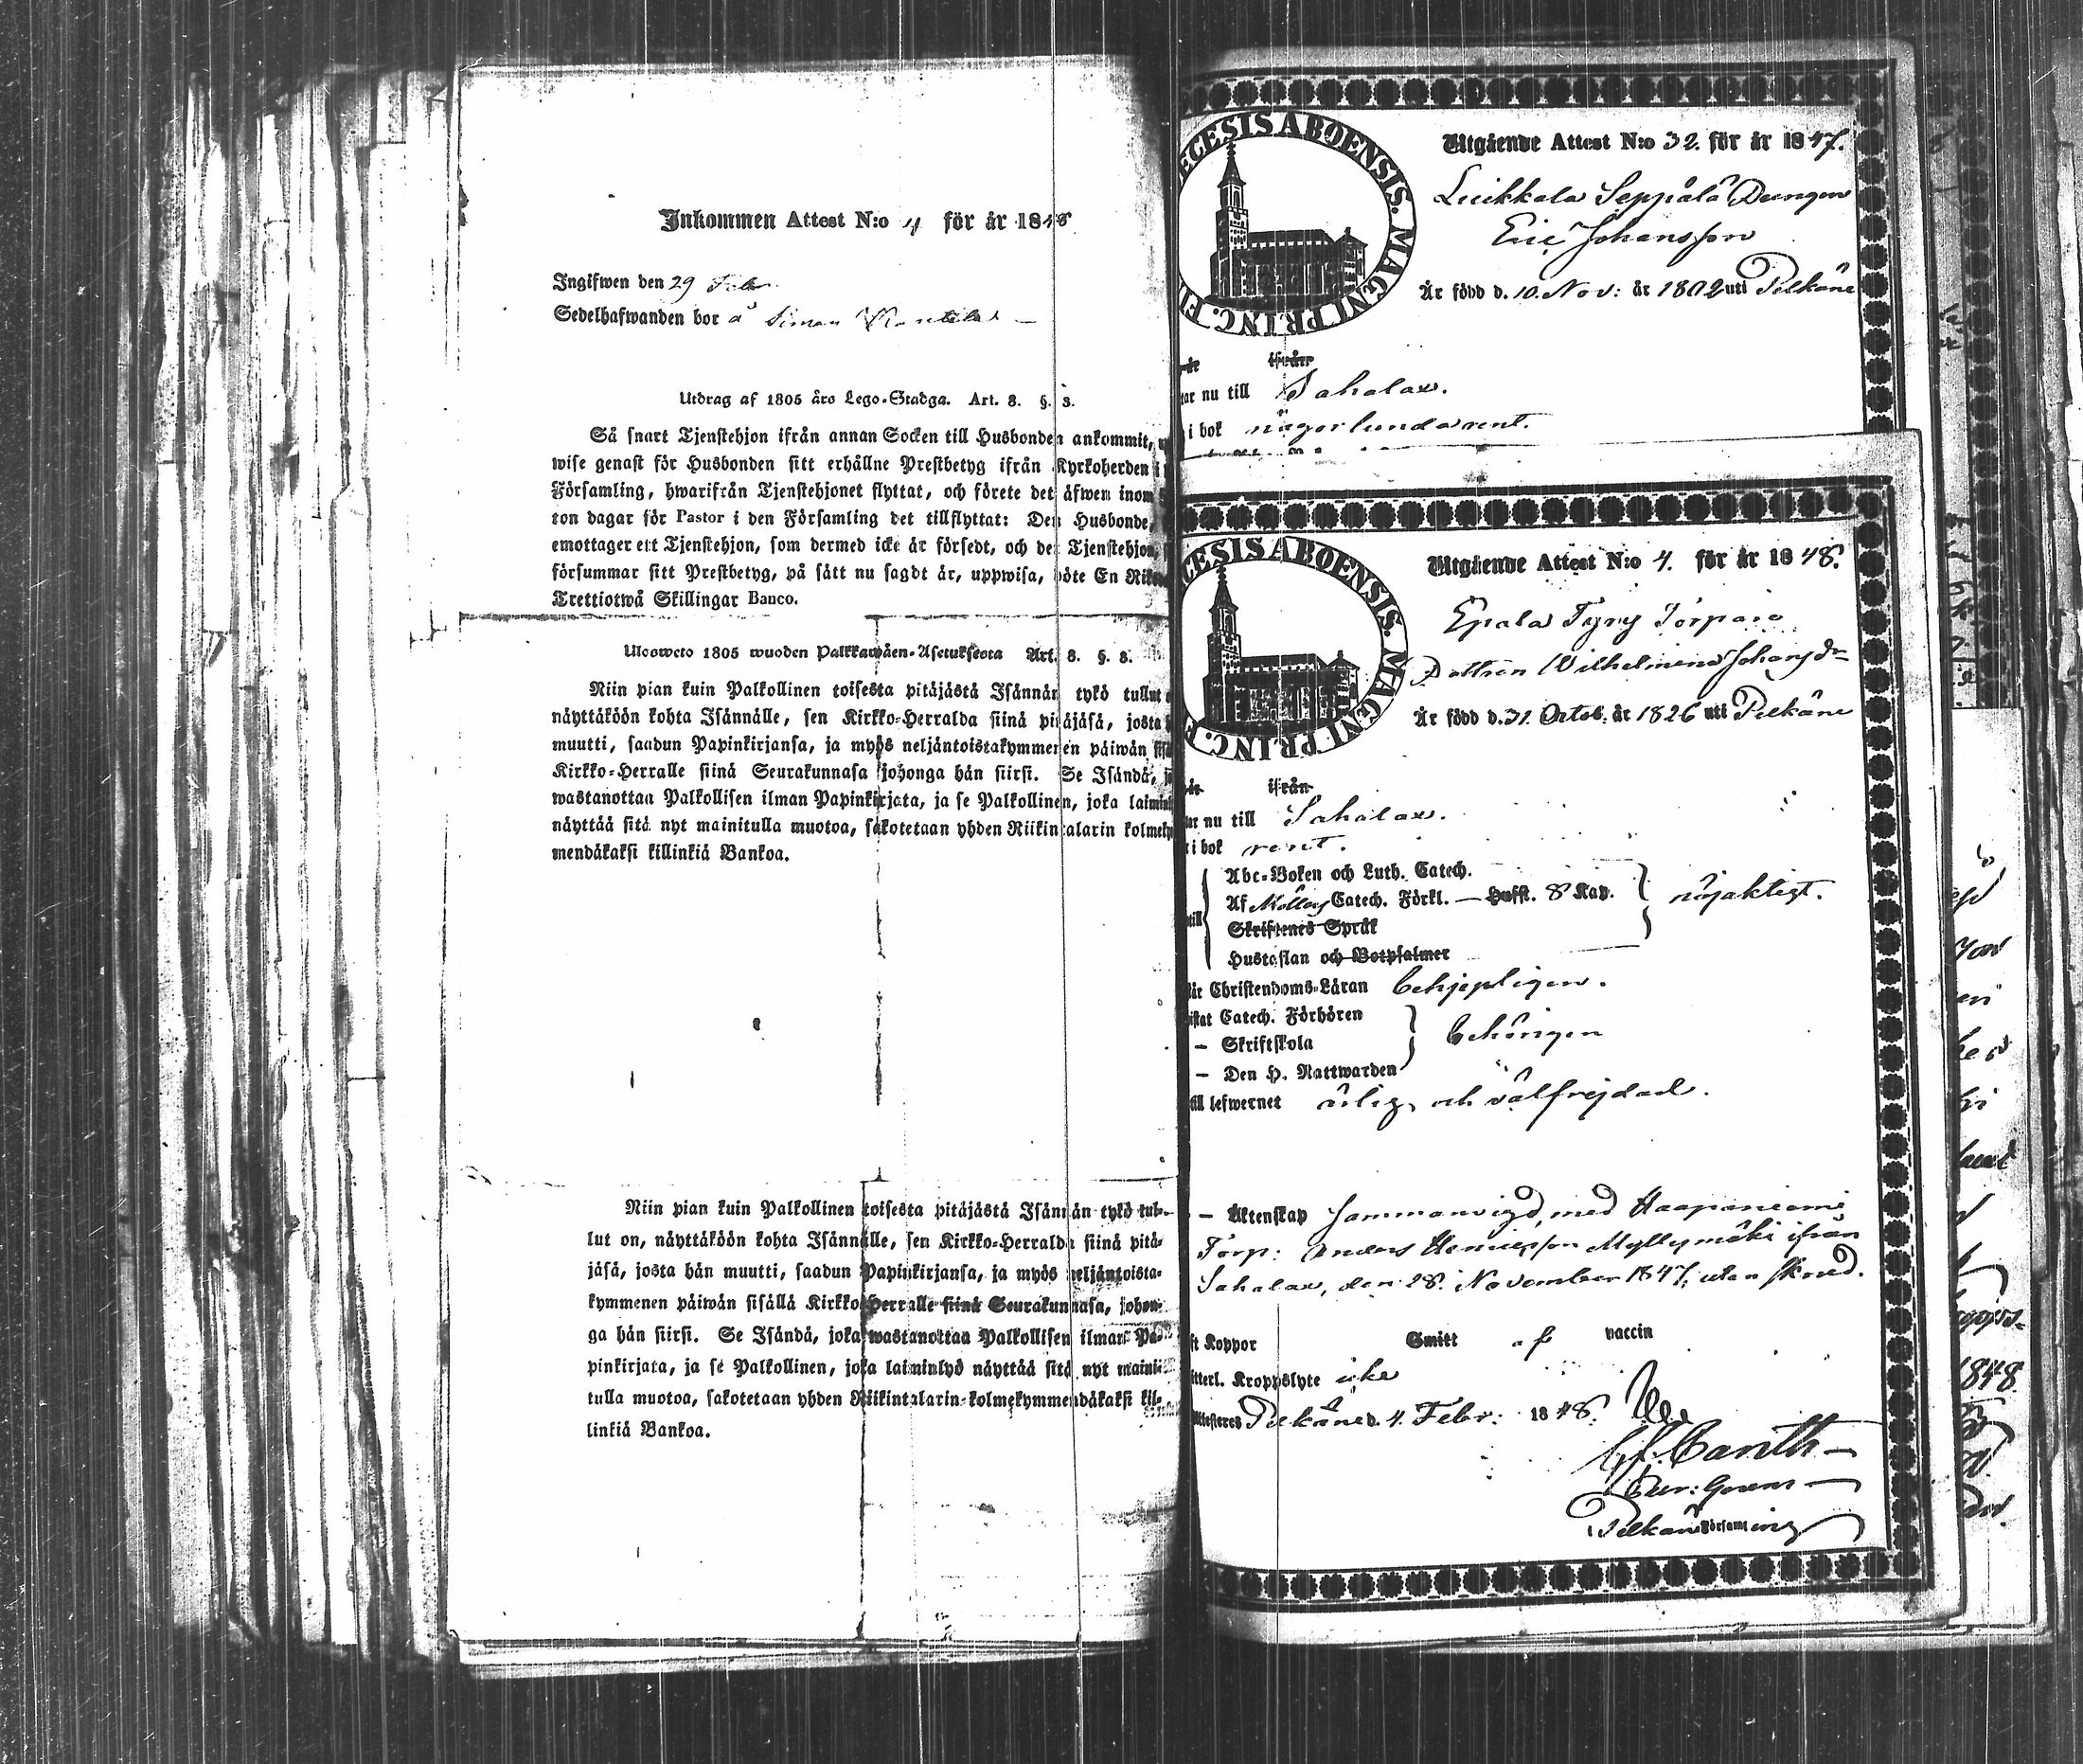 Inkommen Attest N:o 4 för år 1848
Ingifwen den 29 Febr.
Sedelhafwanden bor å Simon
Utdrag af 1805 års Lego-Stadga. Art. 8. §. 3.
Så snart Tjenstehjon ifrån annan Socken till Husbonden ankommit,
wise genast för Husbonden sitt erhållne Prestbetyg ifrån Kyrkoherden i
Församling, hwarifrån Tjenstehjonet flyttat, och förete det äfwen inom
ton dagar för Pastor i den Församling det tillflyttat: Den Husbonde,
emottager ett Tjenstehjon, som dermed icke är försedt, och det Tjenstehjon,
försummar sitt Prestbetyg, på sätt nu sagdt är, uppwisa, böte En Riks
Trettiotwå Skillingar Banco.
Ulosweto 1805 wuoden Palkkawäen-Asetuksesta Art. 8. §. 3.
Niin pian kuin Palkollinen toisesta pitäjästä Isännän tykö tullut
näyttäköön kohta Isännälle, sen Kirkko-Herralda siinä pitäjäsä, josta
muutti, saadun Papinkirjansa, ja myös neljäntoistakymmenen päiwän sisä
Kirkko-Herralle siinä Seurakunnasa johonga hän siirsi. Se Isändä, j
wastanottaa Palkollisen ilman Papinkirjata, ja se Palkollinen, joka laimin
näyttää sitä nyt mainitulla muotoa, sakotetaan yhden Riikintalarin kolmeky
mendäkaksi killinkiä Bankoa.
Niin pian kuin Palkollinen toisesta pitäjästä Isännän tykö tul-
lut on, näyttäköön kohta Isännälle, sen Kirkko-Herralda siinä pitä-
jäsä, josta hän muutti, saadun Papinkirjansa, ja myös neljäntoista-
kymmenen päiwän sisällä Kirkko-Herralle siinä Seurakunnasa, johon-
ga hän siirsi. Se Isändä, joka wastanottaa Palkollisen ilman Pa-
pinkirjata, ja se Palkollinen, joka laiminlyö näyttää sitä nyt maini-
tulla muotoa, sakotetaan yhden Riikintalarin kolmekymmendäkaksi kil-
linkiä Bankoa.
ECESIS ABOENSIS. MAGNI PRINC. FI
Utgående Attest N:o 32. för år 1847.
Luikkala Seppälä Drengen
Eric Johansson
Är född d. 10. Nov: år 1802 uti Pelkäne
ifrån
ar nu till Sahalax.
i bok någorlunda rent.
CESIS ABOENSIS. MAGNI PRINC. F
Utgående Attest N:o 4. för år 1848.
Epala Tyry Torpare
Dottren Wilhelmina Johansdr
Är född d. 31. Octob. år 1826 uti Pelkäne
ifrån
ar nu till Sahalax.
i bok rent.
Abc-Boken och Luth. Catech.
Af Möllers Catech. Förkl. — Hufst. 8 Kap. nöjaktigt.
till Skriftenes Språk
Hustaflan och Botpsalmer
är Christendoms-Läran behjepligen.
istat Catech. Förhören
— Skriftskola behörigen
— Den H. Nattwarden
till lefwernet ärlig och välfrejdad.
— Äktenskap Sammanvigd med Haapaniemi
Torp: Anders Henricsson Myllymäki ifrån
Sahalax, den 28. November 1847, utan skned.
ft Koppor Smitt af vaccin
itterl. Kroppslyte icke
Attesteres Pelkäne d. 4. Febr: 1848.
Canth
Pelkäne Församling
1848